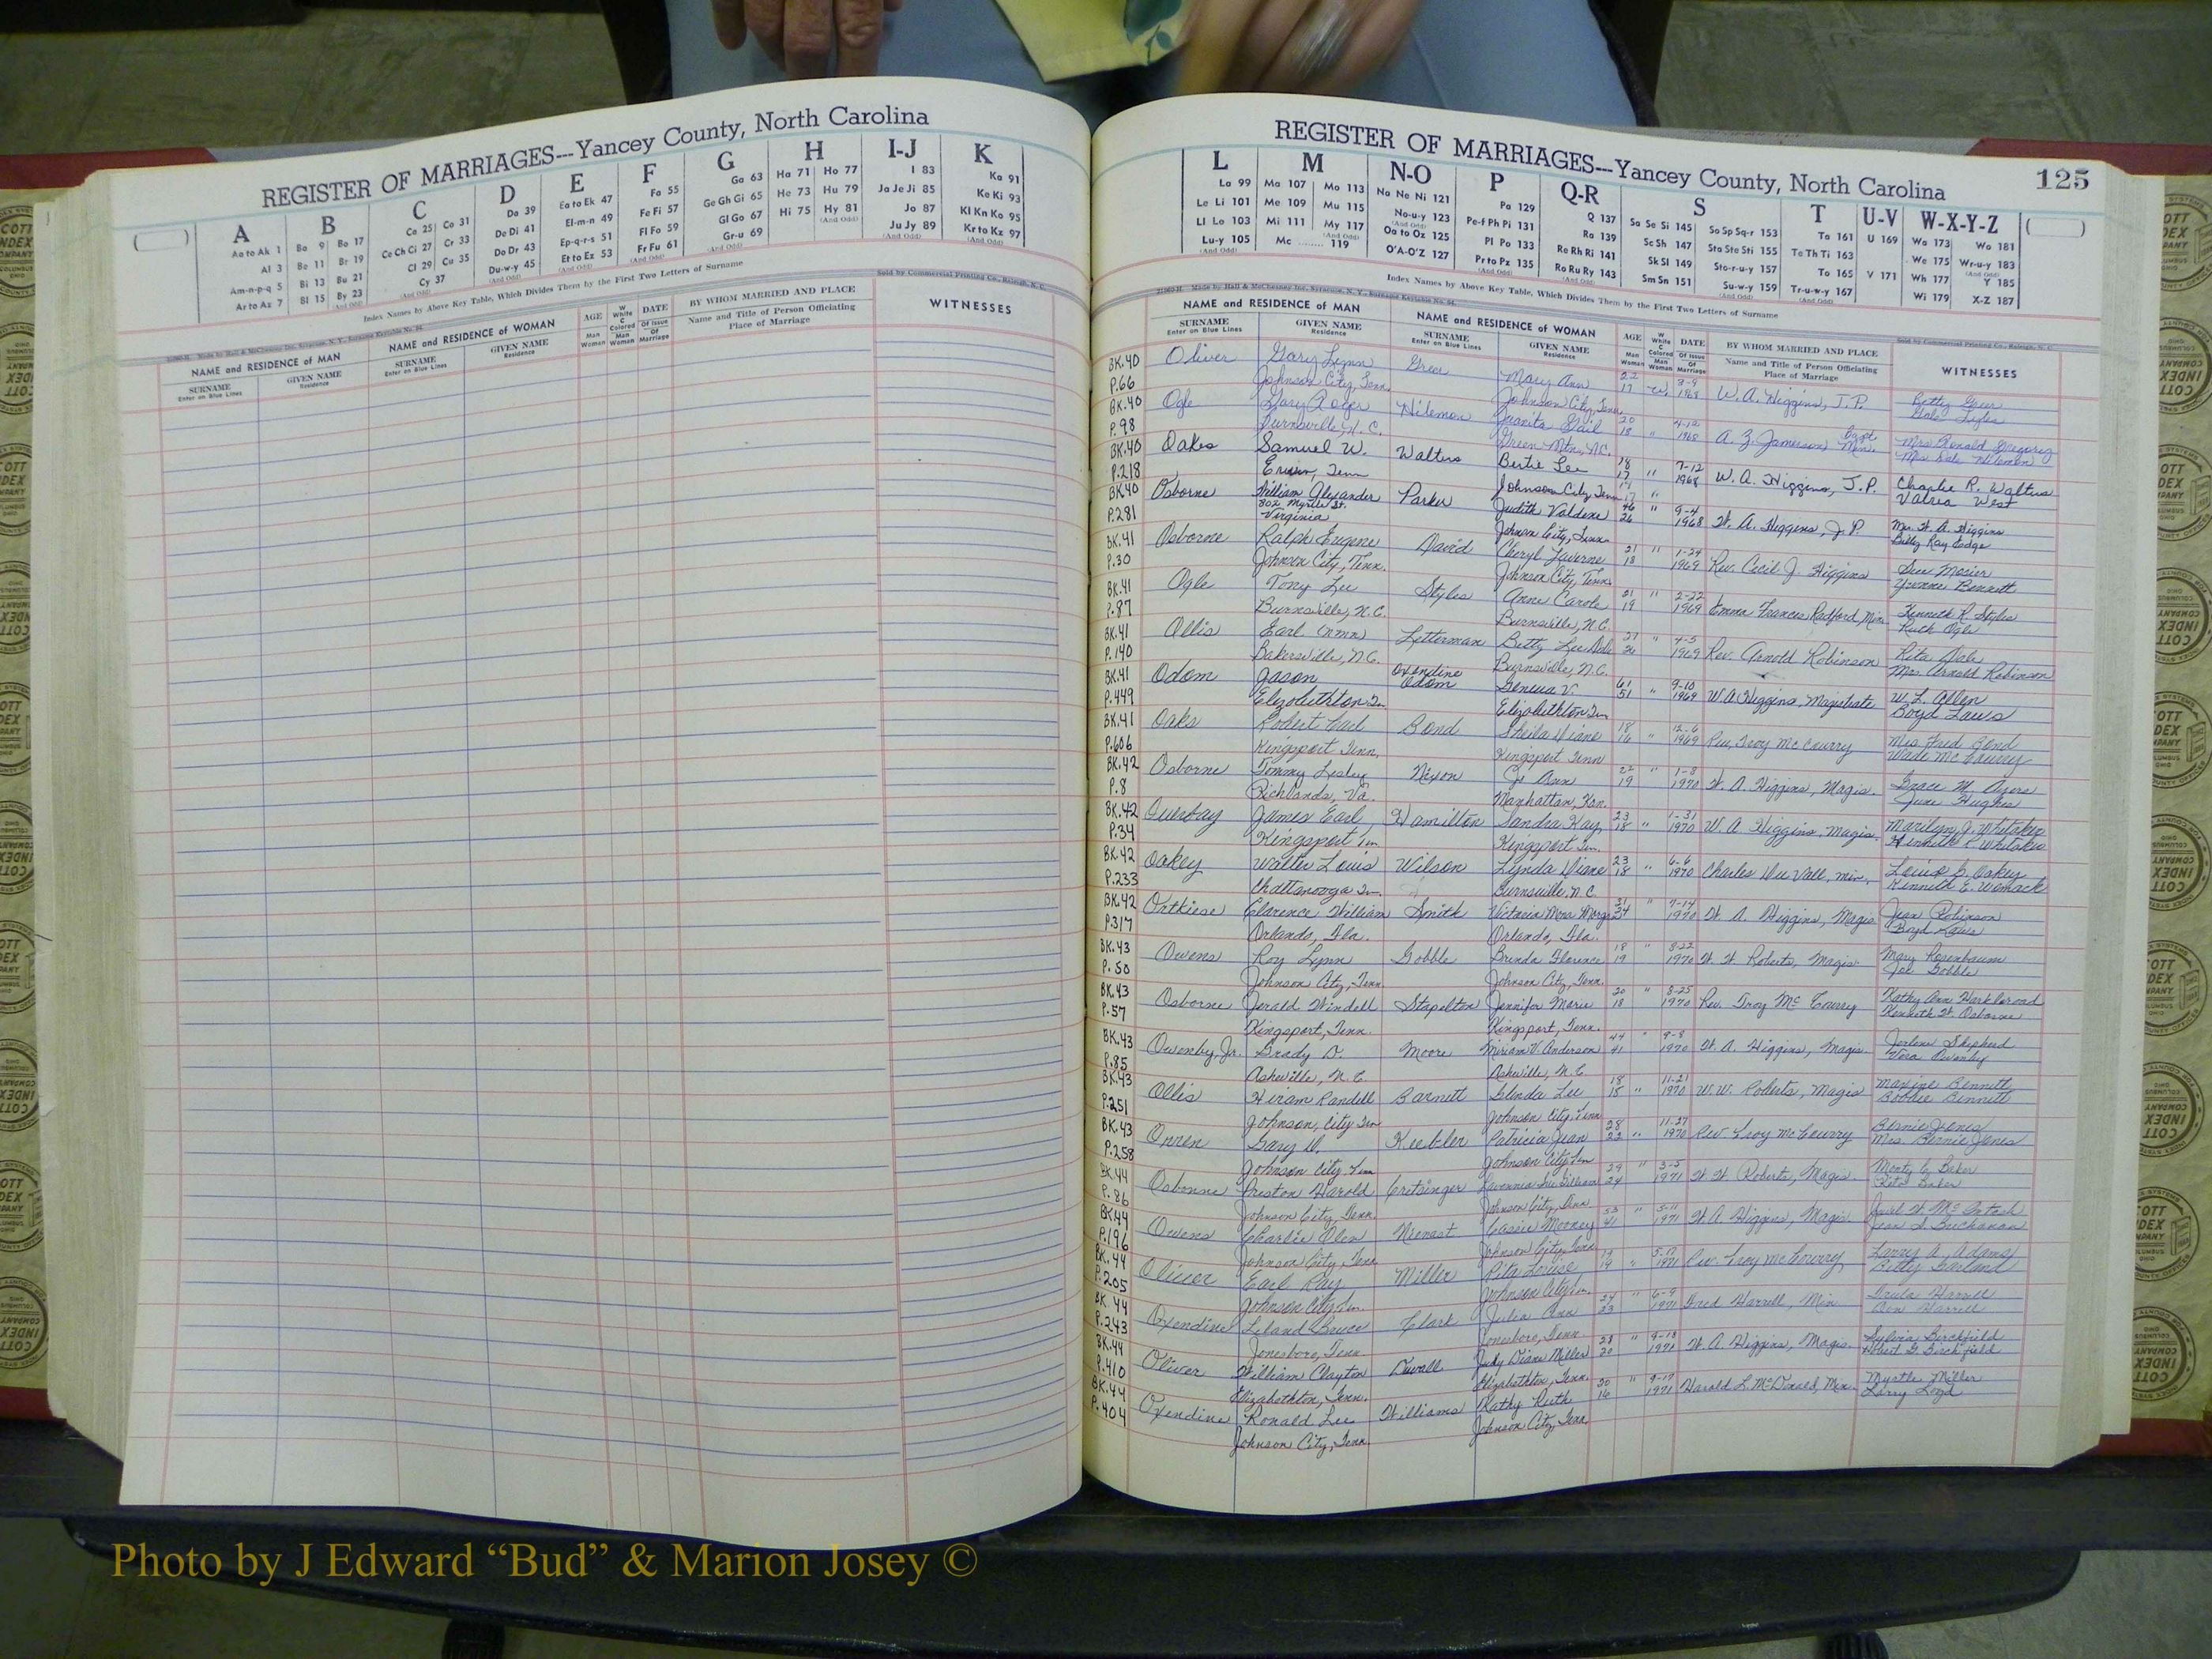 REGISTER OF MARRIAGES---Yancey County, North Carolina
A B C D E F G H I-J K
Aa to Ak 1
Al 3
Am-n-p-q 5
Ar to Az 7
Ba 9 Bo 17
Be 11 Br 19
Bi 13 Bu 21
Bl 15 By 23
Ca 25 Co 31
Ce Ch Ci 27 Cr 33
Cl 29 Cu 35
Cy 37
Da 39
De Di 41
Do Dr 43
Du-w-y 45
Ea to Ek 47
El-m-n 49
Ep-q-r-s 51
Et to Ez 53
Fa 55
Fe Fi 57
Fl Fo 59
Fr Fu 61
Ga 63
Ge Gh Gi 65
Gl Go 67
Gr-u 69
Ha 71 Ho 77
He 73 Hu 79
Hi 75 Hy 81
I 83
Ja Je Ji 85
Jo 87
Ju Jy 89
Ka 91
Ke Ki 93
Kl Kn Ko 95
Kr to Kz 97
Index Names by Above Key Table, Which Divides Them by the First Two Letters of Surname
Sold by Commercial Printing Co., Raleigh, N. C.
NAME and RESIDENCE of MAN
SURNAME
Enter on Blue Lines
GIVEN NAME
Residence
NAME and RESIDENCE of WOMAN
SURNAME
Enter on Blue Lines
GIVEN NAME
Residence
AGE
Man
Woman
W
White
C
Colored
Man
Woman
DATE
Of Issue
Of
Marriage
BY WHOM MARRIED AND PLACE
Name and Title of Person Officiating
Place of Marriage
WITNESSES
REGISTER OF MARRIAGES---Yancey County, North Carolina
125
L M N-O P Q-R S T U-V W-X-Y-Z
La 99
Le Li 101
Ll Lo 103
Lu-y 105
Ma 107 Mo 113
Me 109 Mu 115
Mi 111 My 117
Mc 119
Na Ne Ni 121
No-u-y 123
Oa to Oz 125
O'A-O'Z 127
Pa 129
Pe-f Ph Pi 131
Pl Po 133
Pr to Pz 135
Q 137
Ra 139
Re Rh Ri 141
Ro Ru Ry 143
Sa Se Si 145 So Sp Sq-r 153
Sc Sh 147 Sta Ste Sti 155
Sk Sl 149 Sto-r-u-y 157
Sm Sn 151 Su-w-y 159
Ta 161
Te Th Ti 163
To 165
Tr-u-w-y 167
U 169
V 171
Wa 173 Wo 181
We 175 Wr-u-y 183
Wh 177 Y 185
Wi 179 X-Z 187
Index Names by Above Key Table, Which Divides Them by the First Two Letters of Surname
NAME and RESIDENCE of MAN
SURNAME
Enter on Blue Lines
GIVEN NAME
Residence
NAME and RESIDENCE of WOMAN
SURNAME
Enter on Blue Lines
GIVEN NAME
Residence
AGE
Man
Woman
W
White
C
Colored
Man
Woman
DATE
Of Issue
Of
Marriage
BY WHOM MARRIED AND PLACE
Name and Title of Person Officiating
Place of Marriage
WITNESSES
BK.40 Oliver Gary Lynn Greer Mary Ann 22 W. A. Higgins, J.P. Betty Greer
P.66 Johnson City, Tenn. Johnson City, Tenn. 17 1968
BK.40 Ogle Gary Roger Hileman Juanita Gail 20 4-12 A. Z. Jamerson Bapt. Min. Mrs. Ronald Gregory
P.98 Burnsville, N.C. Green Mtn., N.C. 18 " 1968 Mrs. Dale Hileman
BK.40 Oakes Samuel W. Walters Bertie Lee 18 7-12 W. A. Higgins, J.P. Charlie R. Walters
P.218 Erwin, Tenn Johnson City, Tenn 17 " 1968 Valrea West
BK.40 Osborne William Alexander Parker Judith Valdene 46 " 9-4 W. A. Higgins, J.P. Mrs. W. A. Higgins
P.281 802 Myrtle St. Virginia Johnson City, Tenn. 26 1968 Billy Ray Edge
BK.41 Osborne Ralph Eugene David Cheryl Laverne 21 " 1-24 Rev. Cecil J. Higgins Sue Mosier
P.30 Johnson City, Tenn. Johnson City, Tenn. 18 1969 Yvonne Bennett
BK.41 Ogle Tony Lee Styles Anne Carole 21 " 2-22 Emma Frances Radford, Min. Kenneth R. Styles
P.87 Burnsville, N.C. Burnsville, N.C. 19 1969 Ruth Ogle
BK.41 Ollis Earl (nmn) Letterman Betty Lee Dale " 4-5 Rev. Arnold Robinson Rita Dale
P.140 Bakersville, N.C. Burnsville, N.C. 1969 Mrs. Arnold Robinson
BK.41 Odom Jason Oxendine Odom Geneva V. 61 9-10 W. A. Higgins, Magistrate W. L. Allen
P.449 Elizabethton Tn Elizabethton Tn 51 " 1969 Boyd Laws
BK.41 Oaks Robert Earl Bond Sheila Diane 18 12-6 Rev. Troy McCurry Mrs Fred Bond
P.606 Kingsport Tenn. Kingsport Tenn 16 " 1969 Wade McCourry
BK.42 Osborne Tommy Lesley Nixon Jo Ann 22 " 1-8 W. A. Higgins, Magis. Grace M. Ayers
P.8 Richlands, Va. Manhattan, Kan. 19 1970 June Hughes
BK.42 Overbay James Earl Hamilton Sandra Kay 23 1-31 W. A. Higgins, Magis. Marilyn J. Whitaker
P.34 Kingsport Tn Kingsport Tn. 18 " 1970 Kenneth R. Whitaker
BK.42 Oakey Walter Louis Wilson Lynda Diane 23 6-6 Charles DuVall, Min. Louis G. Oakey
P.233 Chattanooga Tn. Burnsville, N.C. 18 " 1970 Kenneth E. Womack
BK.42 Ortkiese Clarence William Smith Victoria Mona 31 " 7-14 W. A. Higgins, Magis. Jean Robinson
P.317 Orlando, Fla. Orlando, Fla. 24 1970 Boyd Laws
BK.43 Owens Roy Lynn Gobble Brenda Florence 18 " 8-22 W. W. Roberts, Magis. Mary Rosenbaum
P.50 Johnson City, Tenn. Johnson City, Tenn. 19 1970 Joe Gobble
BK.43 Osborne Jerald Windell Stapelton Jennifer Marie 20 " 8-25 Rev. Troy McCourry Kathy Ann Harkleroad
P.57 Kingsport, Tenn. Kingsport, Tenn. 18 1970 Kenneth W. Osborne
BK.43 Owenby, Jr. Grady D. Moore Miriam V. Anderson 44 " 9-8 W. A. Higgins, Magis. Jorlene Shepherd
P.85 Asheville, N.C. Asheville, N.C. 41 1970 Vera Owenby
BK.43 Ollis Hiram Randell Barnett Glenda Lee 18 11-21 W. W. Roberts, Magis Maxine Bennett
P.251 Johnson City Tn Johnson City, Tenn 18 " 1970 Bobbie Bennett
BK.43 Orren Gary D. Keebler Patricia Jean 28 11-27 Rev Troy McCourry Bernie Jones
P.258 Johnson City Tenn Johnson City Tn 22 " 1970 Mrs. Bernie Jones
BK.44 Osborne Preston Harold Critsinger 29 " 3-5 W. W. Roberts, Magis. Monty C. Baker
P.86 Johnson City, Tenn. Johnson City, Tenn. 24 1971 Rita Baker
BK.44 Owens Charlie Olen Nienast Cassie Mooney 53 " 5-11 W. A. Higgins, Magis. Jewel W. McIntosh
P.196 Johnson City, Tenn Johnson City, Tenn 41 1971 Jean S. Buchanan
BK.44 Oliver Earl Ray Miller Rita Louise 5-17 Rev. Troy McCourry Larry A. Adams
P.205 Johnson City Tn. Johnson City Tn. 19 " 1971 Betty Garland
BK.44 Oxendine Leland Bruce Clark Julia Ann 24 " 6-9 Fred Harrell, Min. Trula Harrell
P.243 Jonesboro, Tenn. Jonesboro, Tenn. 23 1971 Ben Harrell
BK.44 Oliver William Clayton Duvall Judy Diane Miller 28 " 9-18 W. A. Higgins, Magis. Sylvia Birchfield
P.410 Elizabethton, Tenn. Elizabethton, Tenn. 20 1971 Robert G. Birchfield
BK.44 Oxendine Ronald Lee Williams Kathy Ruth 20 " 9-17 Harold L. McDonald, Min. Myrtle Miller
P.404 Johnson City, Tenn. Johnson City, Tenn. 16 1971 Larry Loyd
Photo by J Edward “Bud” & Marion Josey ©